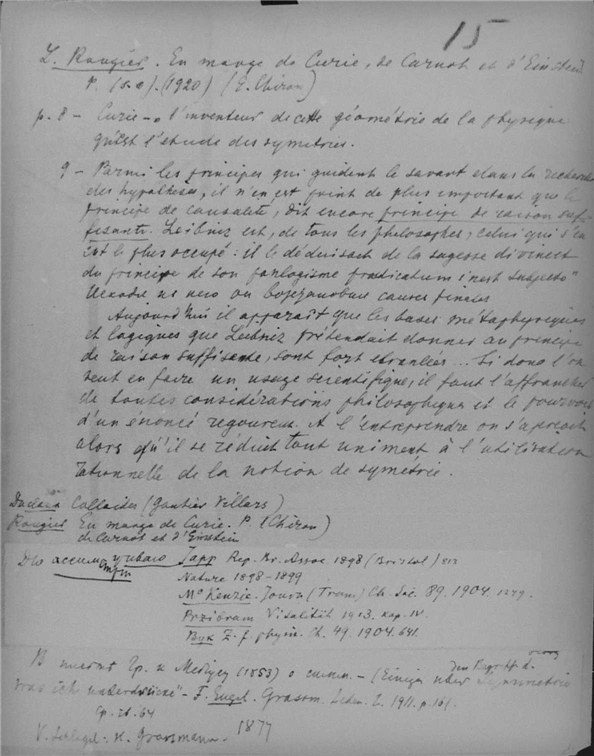 15
L. Rougier. En marge de Curie, de Carnot et d'Einstein
P. (s.a). (1920) (E. Chiron)
p. 8 – Curie – l'inventeur de cette géométrie de la physique
qu'est l'étude des symetries.
9 – Parmi les principes qui guident le savant dans la recherche
des hypothèses, il n'en est point de plus important que le
principe de causalité, dit encore principe de raison suf-
fisante. Leibniz est, de tous les philosophes, celui qui s'en
est le plus occupé: il le déduisait de la sagesse divine et
du principe de son panlogisme praedicatum inest subjecto"
из него он causes finales
Aujourd'hui il apparaît que les bases métaphysiques
et logiques que Leibniz prétendait donner au principe
de raison suffisante, sont fort ebranlées... Si donc l'on
veut en faire un usage scientifique, il faut l'affranchir
de toutes considérations philosophiques et le pourvoir
d'un énoncé rigoureux. A l'entreprendre on s'aperçoit
alors qu'il se réduit tout uniment à l'utilisation
rationnelle de la notion de symétrie.
Duclaux Colloides (Gautier Villars)
Rougier En marge de Curie. P. (Chiron)
de Carnot et d'Einstein
Japp Rep. Br. Assoc. 1898 (Bristol) 813
Nature 1898–1899
McKenzie. Journ. (Trans) Ch. Soc. 89. 1904 1249.
Przibram Vitalität 1913. Kap. IV
Byk Z. f. physik. Ch. 49. 1904. 641.
В Гр. к (1853) о симм. – (Einiges über den Begriff d. Symmetrie
was ich unterdrücke" – F. Engel. Grassm. Leben. L. 1911. p. 161.
Ср. ib. 64
V. Schlegel. H. Grassmann. 1877